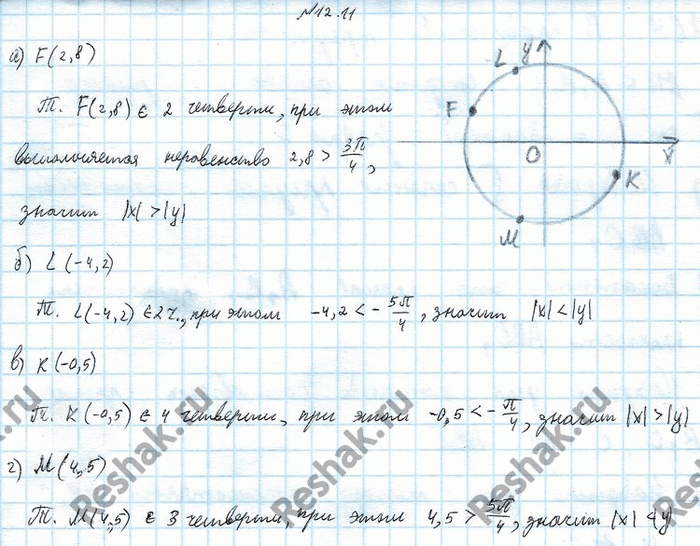 №12.11
а) F(2,8)
т. F(2,8) ∈ 2 четверти, при этом
выполняется неравенство 2,8 > 3π/4,
значит |x| > |y|
б) L(-4,2)
т. L(-4,2) ∈ 2 ч., при этом -4,2 < -5π/4, значит |x| < |y|
в) K(-0,5)
т. K(-0,5) ∈ 4 четверти, при этом -0,5 < -π/4, значит |x| > |y|
г) M(4,5)
т. M(4,5) ∈ 3 четверти, при этом 4,5 > 5π/4, значит |x| < |y
L y
F
O
x
K
M
Reshak.ru
Reshak.ru
Reshak.ru